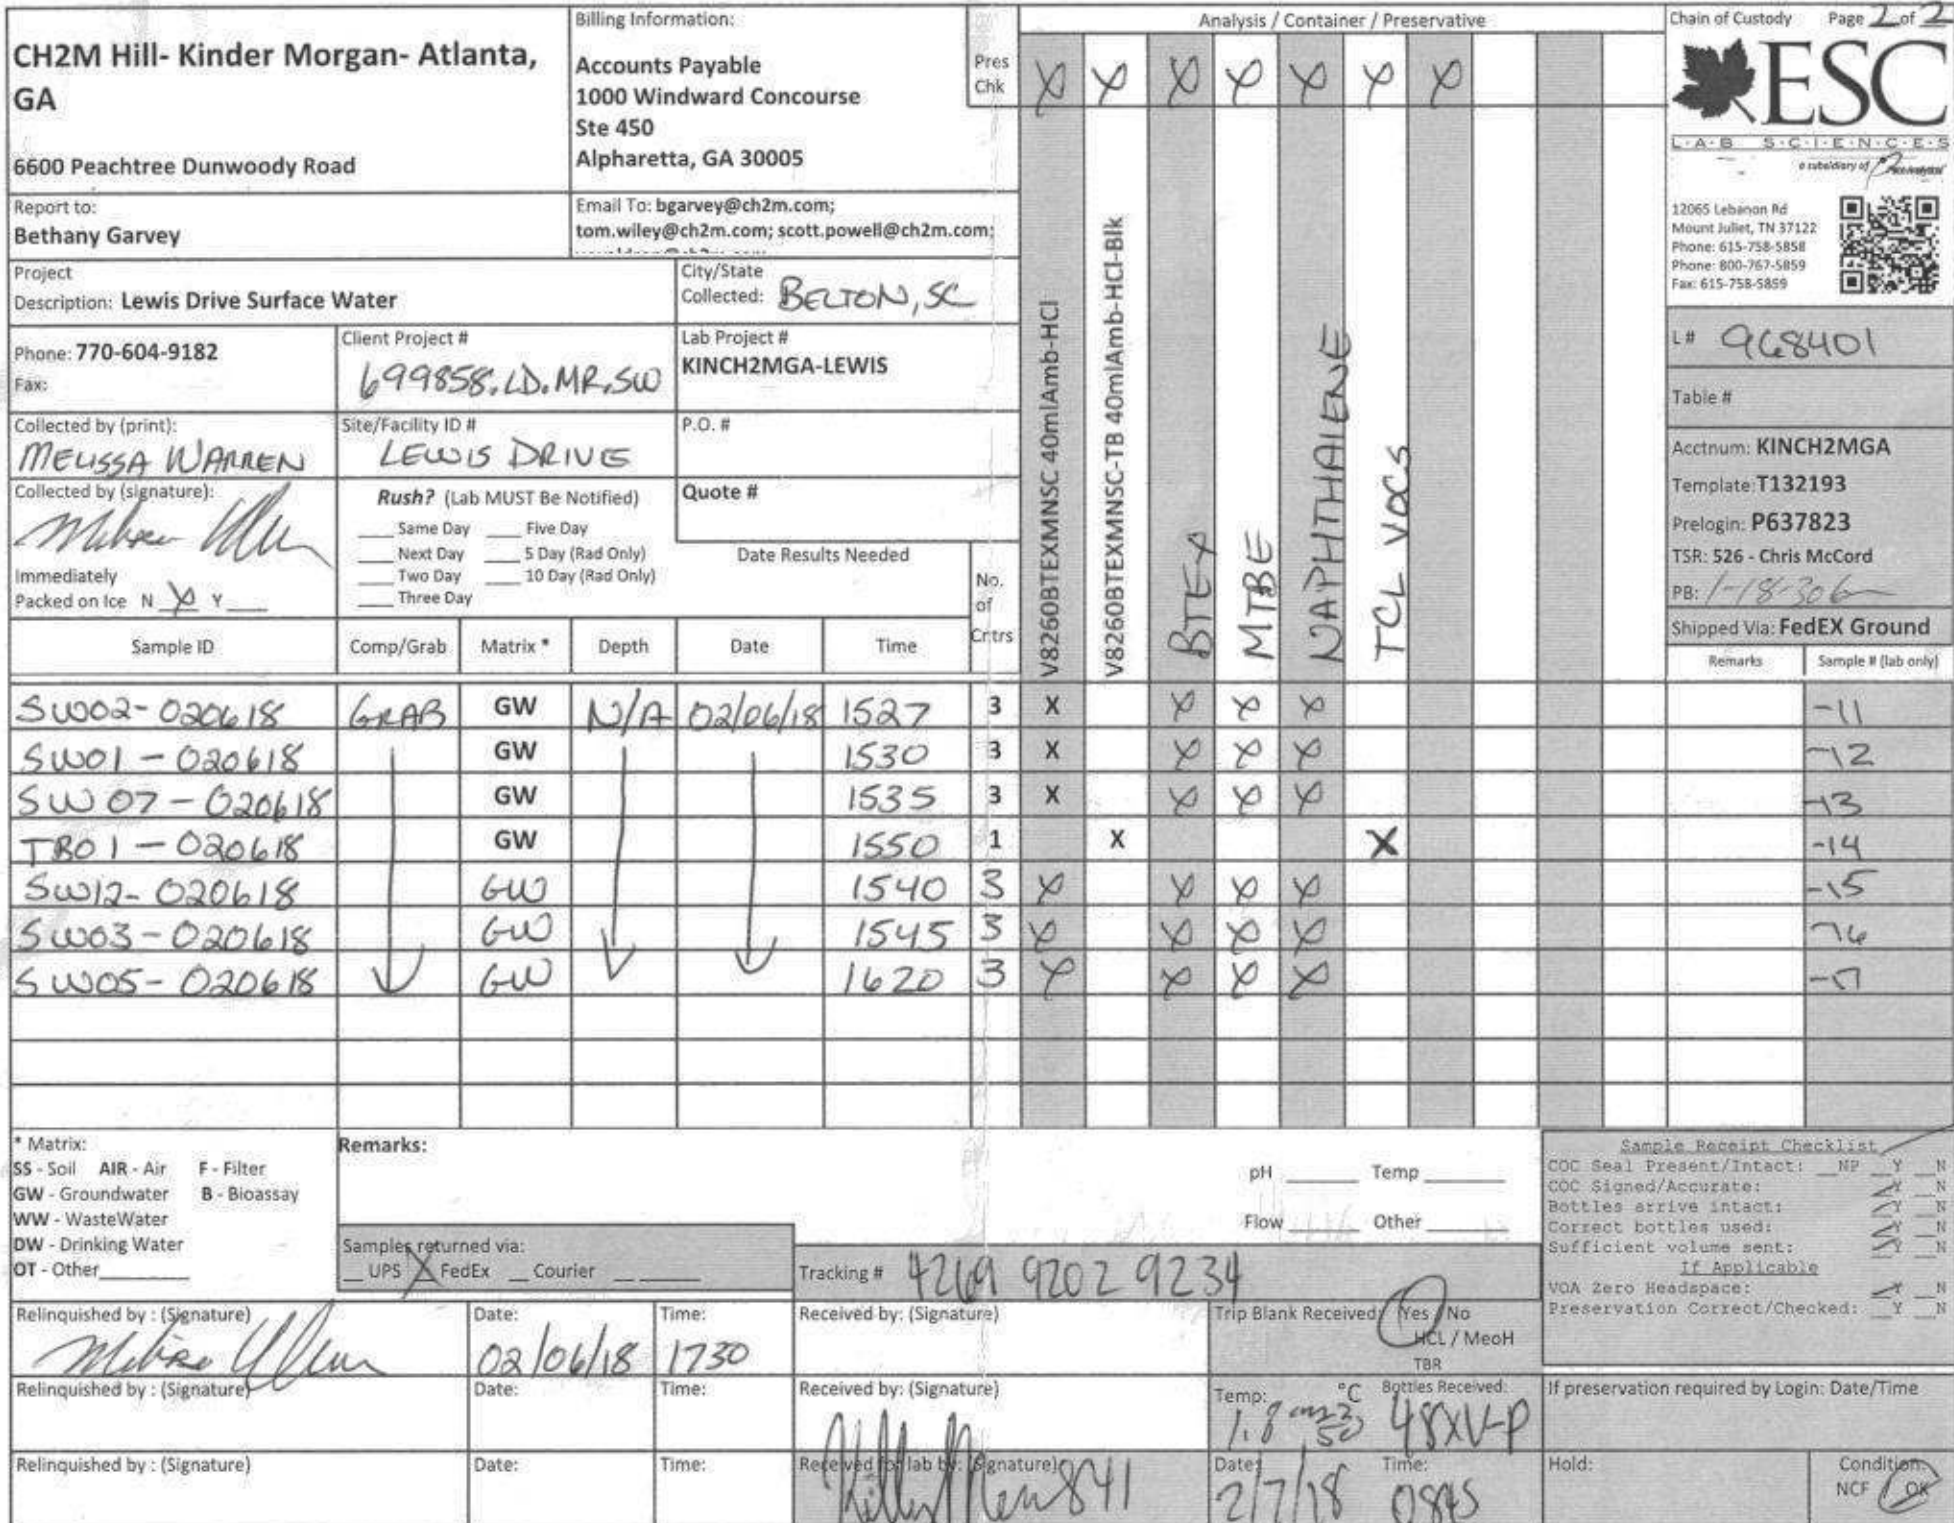 Chain of Custody Page 2 of 2
CH2M Hill- Kinder Morgan- Atlanta,
GA
6600 Peachtree Dunwoody Road
Billing Information:
Accounts Payable
1000 Windward Concourse
Ste 450
Alpharetta, GA 30005
Pres
Chk
Analysis / Container / Preservative
X X X X X X X
ESC
L·A·B S·C·I·E·N·C·E·S
a subsidiary of
12065 Lebanon Rd
Mount Juliet, TN 37122
Phone: 615-758-5858
Phone: 800-767-5859
Fax: 615-758-5859
Report to:
Bethany Garvey
Email To: bgarvey@ch2m.com;
tom.wiley@ch2m.com; scott.powell@ch2m.com;
Project
Description: Lewis Drive Surface Water
City/State
Collected: BELTON, SC
Phone: 770-604-9182
Fax:
Client Project #
699858.LD.MR.SW
Lab Project #
KINCH2MGA-LEWIS
Collected by (print):
MELISSA WARREN
Site/Facility ID #
LEWIS DRIVE
P.O. #
Collected by (signature):
Rush? (Lab MUST Be Notified)
___ Same Day ___ Five Day
___ Next Day ___ 5 Day (Rad Only)
___ Two Day ___ 10 Day (Rad Only)
___ Three Day
Quote #
Date Results Needed
Immediately
Packed on Ice N X Y ___
No.
of
Cntrs
V8260BTEXMNSC 40mlAmb-HCl
V8260BTEXMNSC-TB 40mlAmb-HCl-Blk
BTEX
MTBE
NAPHTHALENE
TCL VOCS
L # 968401
Table #
Acctnum: KINCH2MGA
Template: T132193
Prelogin: P637823
TSR: 526 - Chris McCord
PB:
Shipped Via: FedEX Ground
Remarks Sample # (lab only)
Sample ID Comp/Grab Matrix * Depth Date Time
SW02-020618 GRAB GW N/A 02/06/18 1527 3 X X X X -11
SW01-020618 GW 1530 3 X X X X -12
SW07-020618 GW 1535 3 X X X X -13
TB01-020618 GW 1550 1 X X -14
SW12-020618 GW 1540 3 X X X X -15
SW03-020618 GW 1545 3 X X X X -16
SW05-020618 GW 1620 3 X X X X -17
* Matrix:
SS - Soil AIR - Air F - Filter
GW - Groundwater B - Bioassay
WW - WasteWater
DW - Drinking Water
OT - Other
Remarks:
pH ___ Temp ___
Flow ___ Other ___
Samples returned via:
__ UPS X FedEx __ Courier __
Tracking # 4269 9202 9234
Sample Receipt Checklist
COC Seal Present/Intact: __NP __Y __N
COC Signed/Accurate: __Y __N
Bottles arrive intact: __Y __N
Correct bottles used: __Y __N
Sufficient volume sent: __Y __N
If Applicable
VOA Zero Headspace: __Y __N
Preservation Correct/Checked: __Y __N
Relinquished by : (Signature)
Date: 02/06/18
Time: 1730
Received by: (Signature)
Trip Blank Received: Yes / No
HCL / MeoH
TBR
Relinquished by : (Signature)
Date:
Time:
Received by: (Signature)
Temp: 1.8 °C
Bottles Received: 48XV-P
If preservation required by Login: Date/Time
Relinquished by : (Signature)
Date:
Time:
Received for lab by: (Signature) 841
Date: 2/7/18
Time: 0845
Hold:
Condition:
NCF / OK